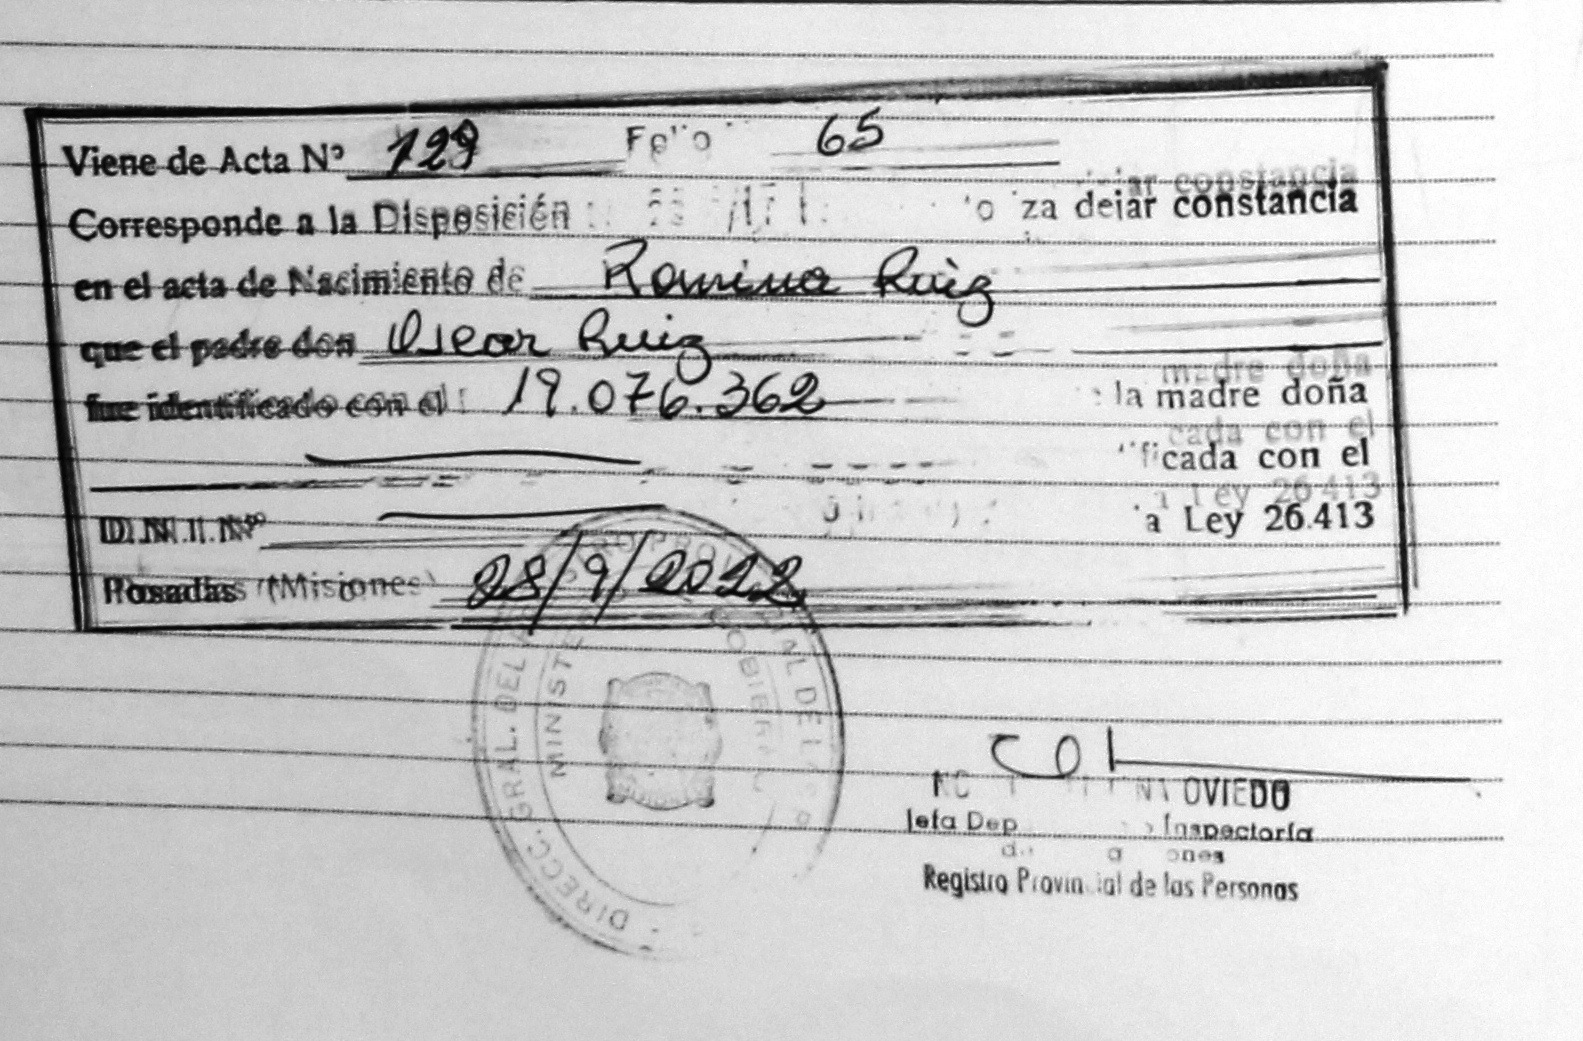 Viene de Acta Nº 129 Folio 65
Corresponde a la Disposición dejar constancia
en el acta de Nacimiento de Romina Ruiz
que el padre don Oscar Ruiz
fue identificado con el 19.076.362 la madre doña
ficada con el
D.N.I. Nº a Ley 26.413
Posadas (Misiones) 28/9/2022
DIRECC. GRAL. DEL REGISTRO PROVINCIAL DE LAS
MINISTE GOBIERNO
OVIEDO
Jefa Dep Inspectoría
Registro Provincial de las Personas